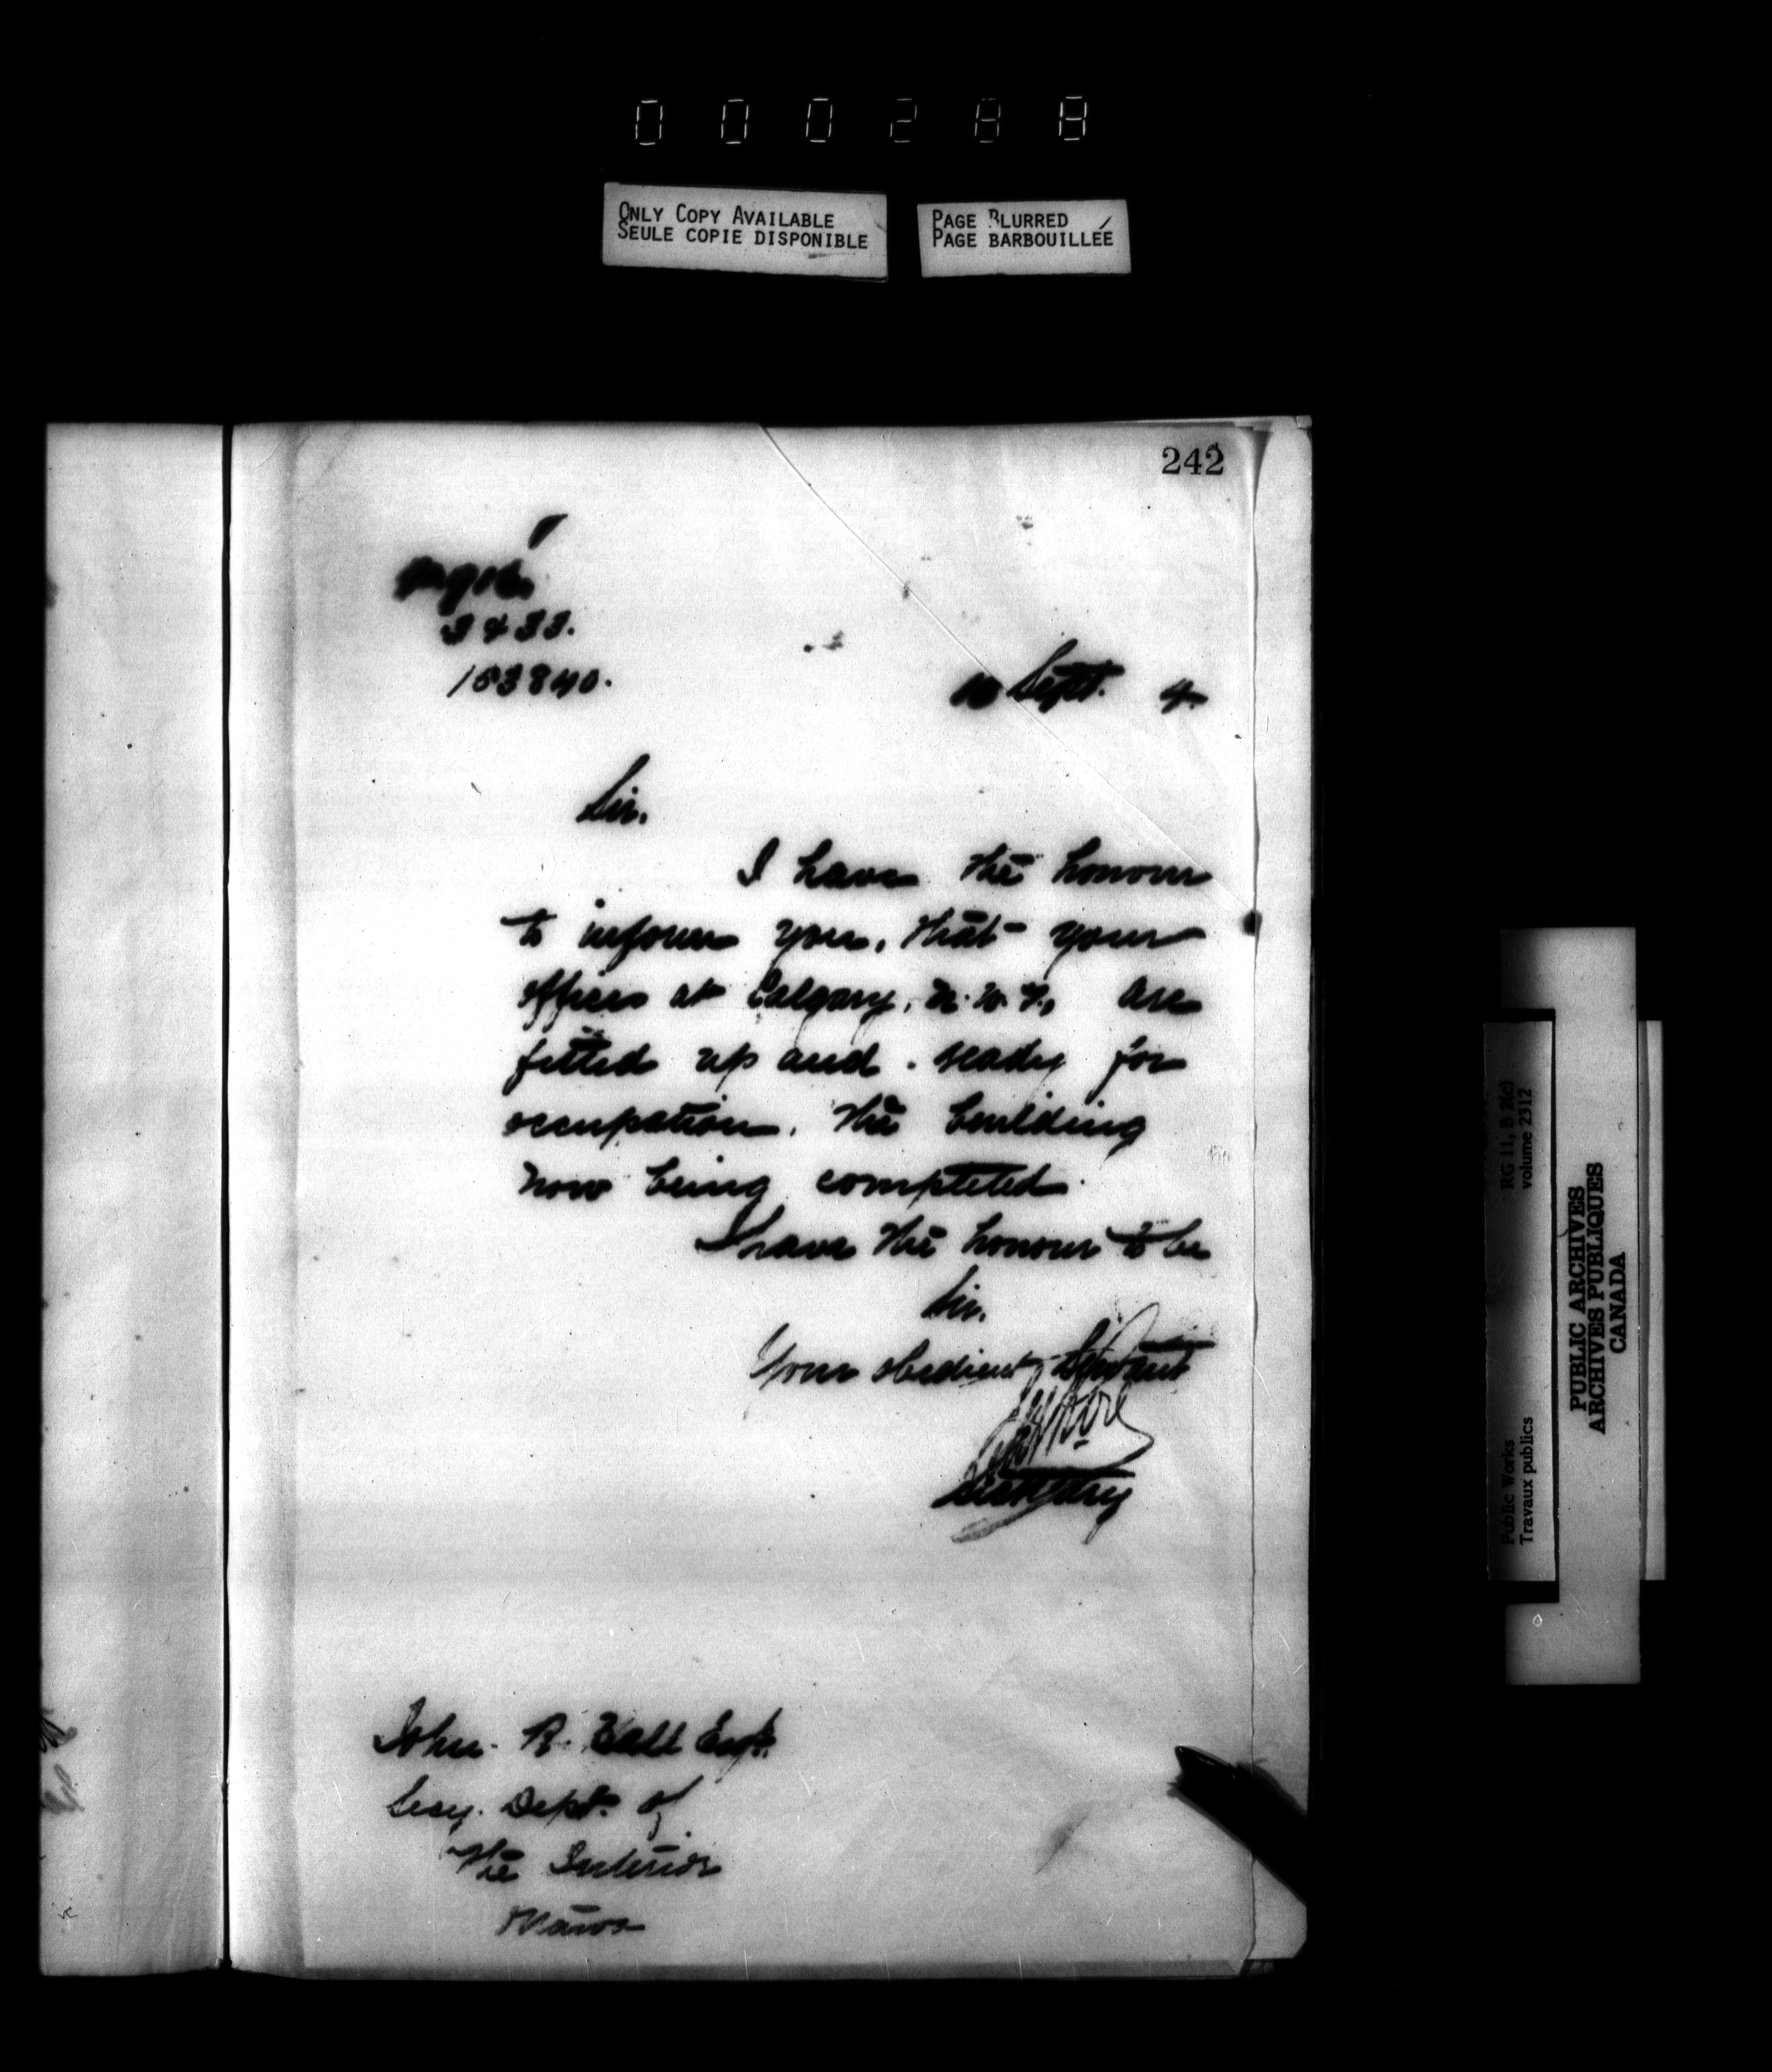 000288
ONLY COPY AVAILABLE
SEULE COPIE DISPONIBLE
PAGE BLURRED
PAGE BARBOUILLÉE
242
153840.
10 Sept. 4
Sir.
I have the honour
to inform you, that your
offices at Calgary, N.W.T., are
fitted up and ready for
occupation. The building
now being completed.
I have the honour to be
Sir.
Your obedient Servant
Secretary
John R. Hall Esqr.
Secy. Dept. of
the Interior
Ottawa
RG 11, B 2(c)
volume 2312
Public Works
Travaux publics
PUBLIC ARCHIVES
ARCHIVES PUBLIQUES
CANADA